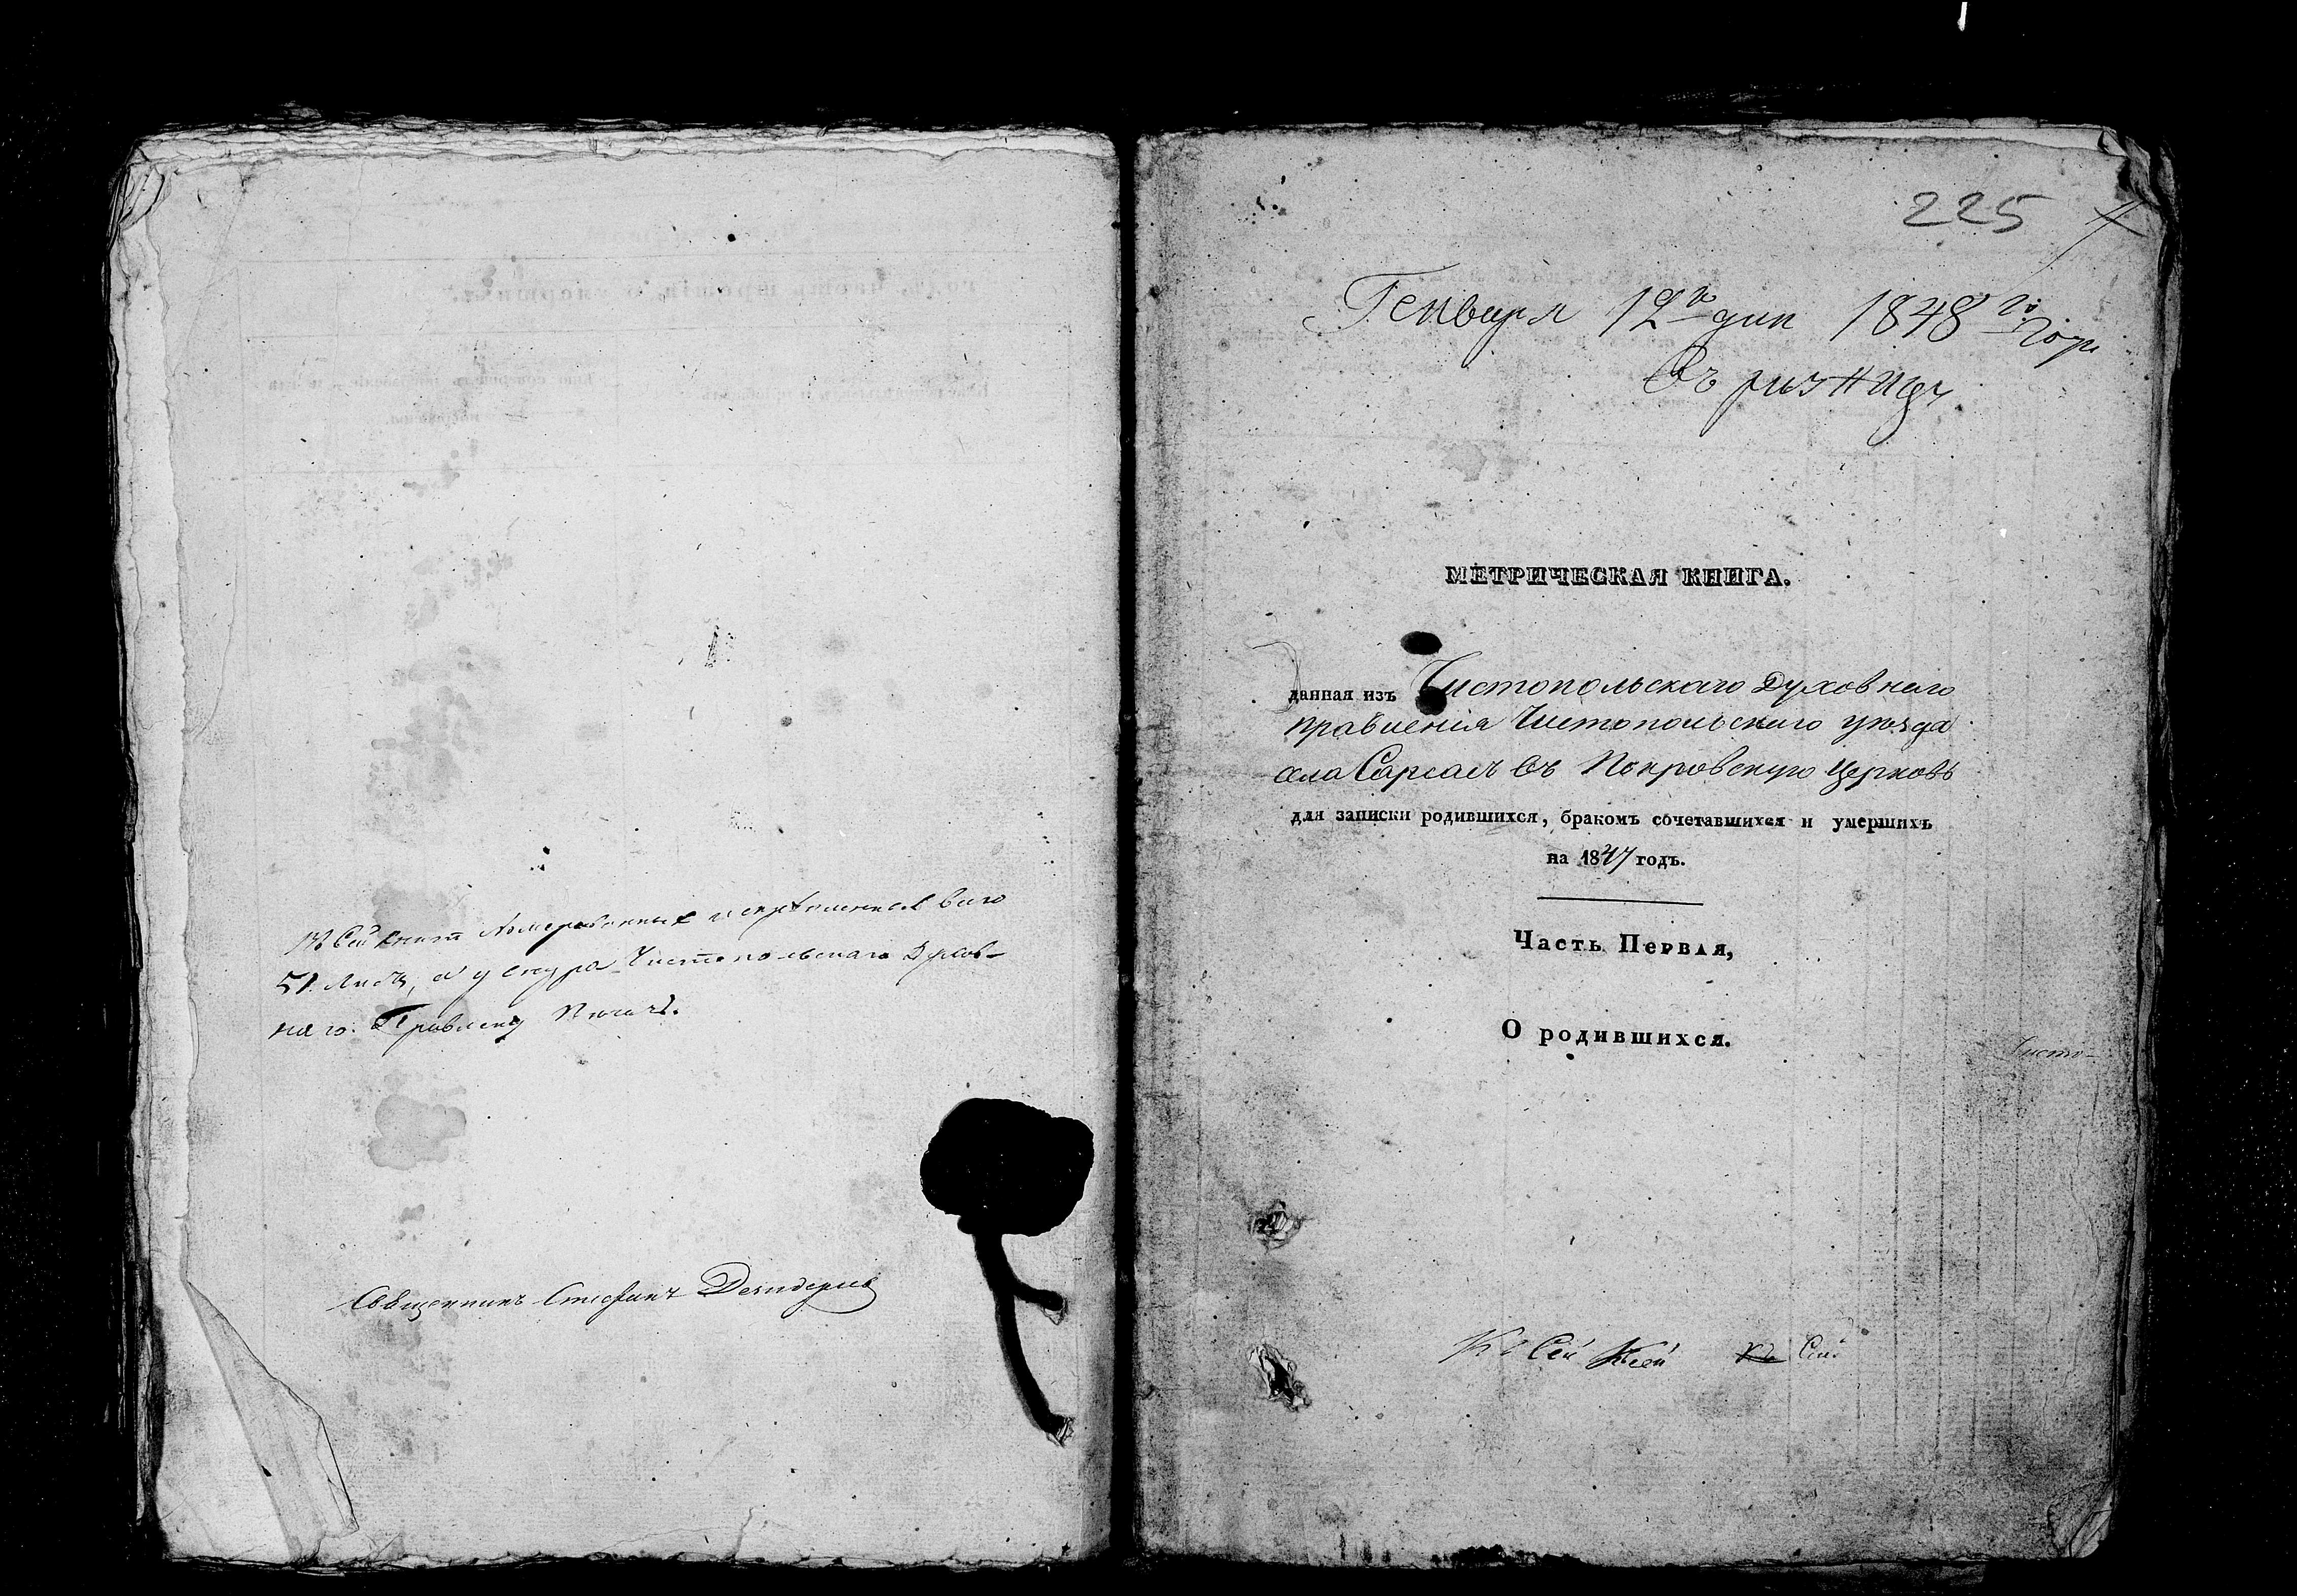 Въ сей книгѣ номерованныхъ и скрѣпленныхъ всего
51. листъ, а у снура Чистопольскаго Духов-
наго Правленія печать.
Священникъ Стефанъ
225
Генваря 12го дня 1848го года
Въ ризницѣ
МЕТРИЧЕСКАЯ КНИГА.
данная изъ Чистопольскаго Духовнаго
правленія Чистопольскаго уѣзда
села Сарсасъ въ Покровскую Церковь
для записки родившихся, бракомъ сочетавшихся и умершихъ
на 1847 годъ.
Часть Первая,
О родившихся.
Чисто-
Къ Сей Къ Сей